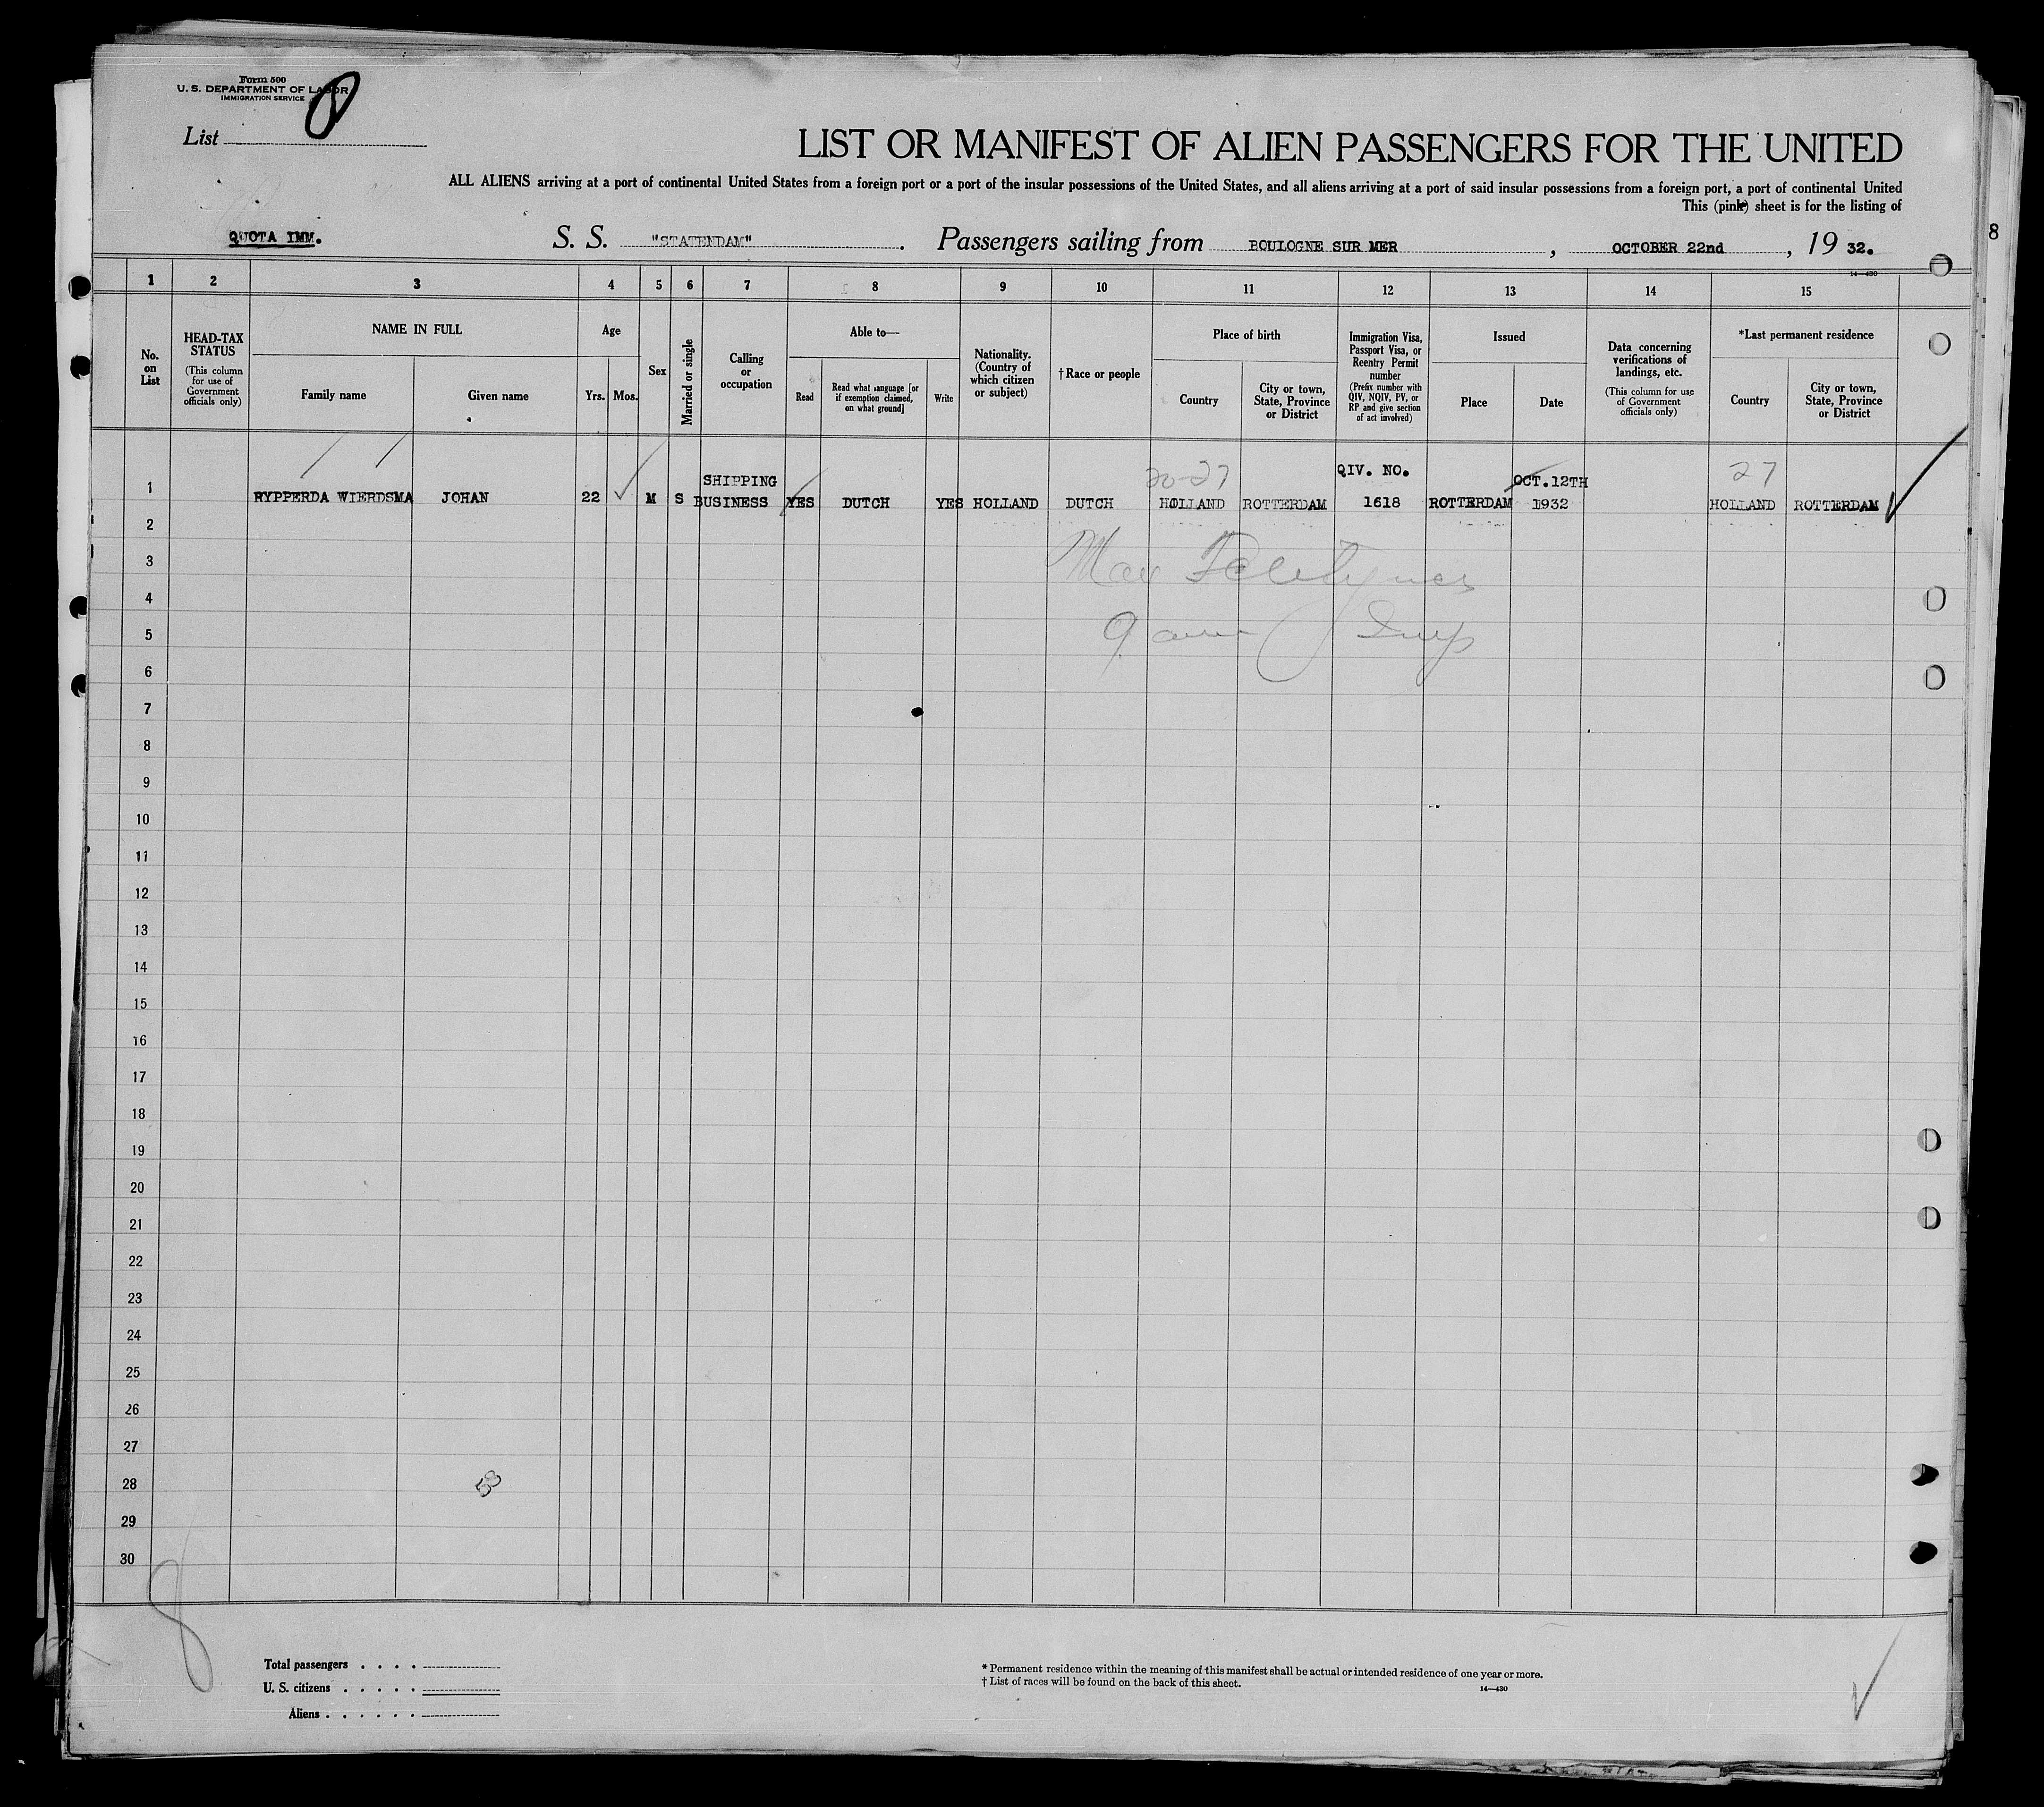 Form 500
U. S. DEPARTMENT OF LABOR
IMMIGRATION SERVICE
8
List
LIST OR MANIFEST OF ALIEN PASSENGERS FOR THE UNITED
ALL ALIENS arriving at a port of continental United States from a foreign port or a port of the insular possessions of the United States, and all aliens arriving at a port of said insular possessions from a foreign port, a port of continental United
This (pink) sheet is for the listing of
QUOTA IMM. S. S. "STATENDAM". Passengers sailing from BOULOGNE SUR MER, OCTOBER 22nd, 19 32.
8
14—430
1 2 3 4 5 6 7 8 9 10 11 12 13 14 15
No. on List
HEAD-TAX STATUS
(This column for use of Government officials only)
NAME IN FULL
Family name
Given name
Age
Yrs.
Mos.
Sex
Married or single
Calling or occupation
Able to—
Read
Read what language [or if exemption claimed, on what ground]
Write
Nationality. (Country of which citizen or subject)
†Race or people
Place of birth
Country
City or town, State, Province or District
Immigration Visa, Passport Visa, or Reentry Permit number
(Prefix number with QIV, NQIV, PV, or RP and give section of act involved)
Issued
Place
Date
Data concerning verifications of landings, etc.
(This column for use of Government officials only)
*Last permanent residence
Country
City or town, State, Province or District
20-27 27
SHIPPING QIV. NO. OCT.12TH
1 RYPPERDA WIERDSMA JOHAN 22 M S BUSINESS YES DUTCH YES HOLLAND DUTCH HOLLAND ROTTERDAM 1618 ROTTERDAM 1932 HOLLAND ROTTERDAM
2
3
4
5
6
7
8
9
10
11
12
13
14
15
16
17
18
19
20
21
22
23
24
25
26
27
28
29
30
8
Total passengers . . . .
U. S. citizens . . . . .
Aliens . . . . . .
* Permanent residence within the meaning of this manifest shall be actual or intended residence of one year or more.
† List of races will be found on the back of this sheet.
14—430